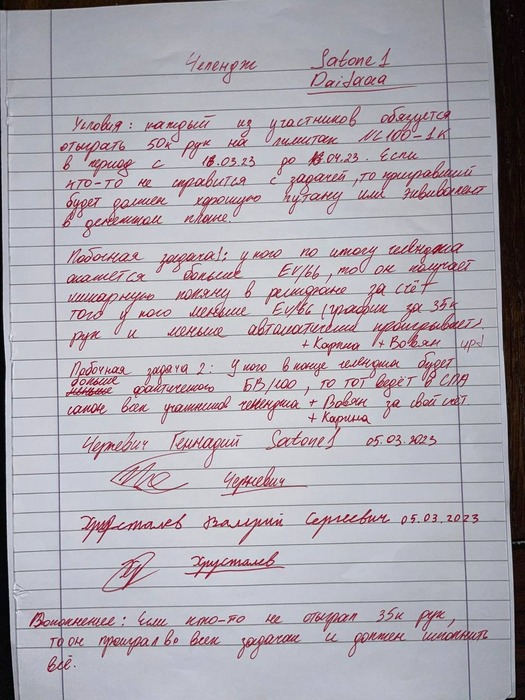 Челендж Satone1
Daifaaa
Условия: каждый из участников обязуется
отыграть 50к рук на лимитах NL100-1К
в период с 13.03.23 до 13.04.23. Если
кто-то не справится с задачей, то проигравший
будет должен хорошую путану или эквивалент
в денежном плане.
Побочная задача 1: у кого по итогу челенджа
окажется больше EV/bb, то он получает
шикарную поляну в ресторане за счёт
того у кого меньше EV/bb (график за 35к
рук и меньше автоматически проигрывает).
+ Карина + Вовян
Побочная задача 2: у кого в конце челенджа будет
больше
фактического ББ/100, то тот ведёт в СПА
салон всех участников челенджа + Вовян за свой счёт
+ Карина
Черневич Геннадий Satone1 05.03.2023
Черневич
Хрусталев Валерий Сергеевич 05.03.2023
Хрусталев
Если кто-то не отыграл 35к рук,
то он проиграл во всех задачах и должен исполнить
всё.